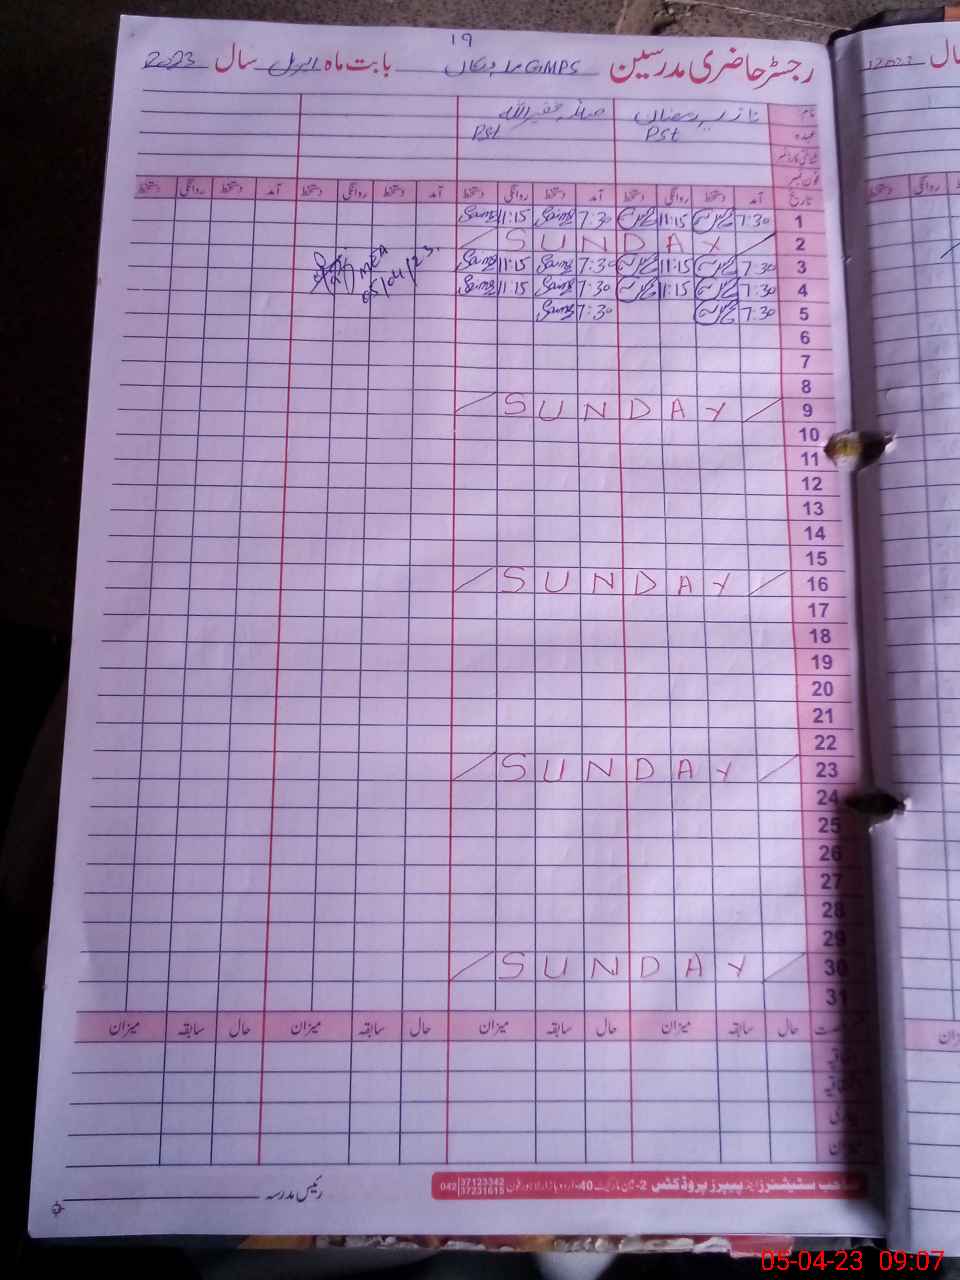 19
رجسٹر حاضری مدرسین GMPS بابت ماہ اپریل سال 2023
نام
عہدہ PST PST
شناختی کارڈ نمبر
فون نمبر
تاریخ آمد دستخط روانگی دستخط آمد دستخط روانگی دستخط آمد دستخط روانگی دستخط آمد دستخط روانگی دستخط
1 7:30 11:15 7:30 11:15
2 SUNDAY
3 7:30 11:15 7:30 11:15
4 7:30 11:15 7:30 11:15
5 7:30 7:30
MEA
05/04/23.
6
7
8
9 SUNDAY
10
11
12
13
14
15
16 SUNDAY
17
18
19
20
21
22
23 SUNDAY
24
25
26
27
28
29
30 SUNDAY
31
حال سابقہ میزان حال سابقہ میزان حال سابقہ میزان حال سابقہ میزان
صاحب سٹیشنرز اینڈ پیپرز پروڈکٹس 2- 40- 042 37123342 37231615
رئیس مدرسہ
05-04-23 09:07